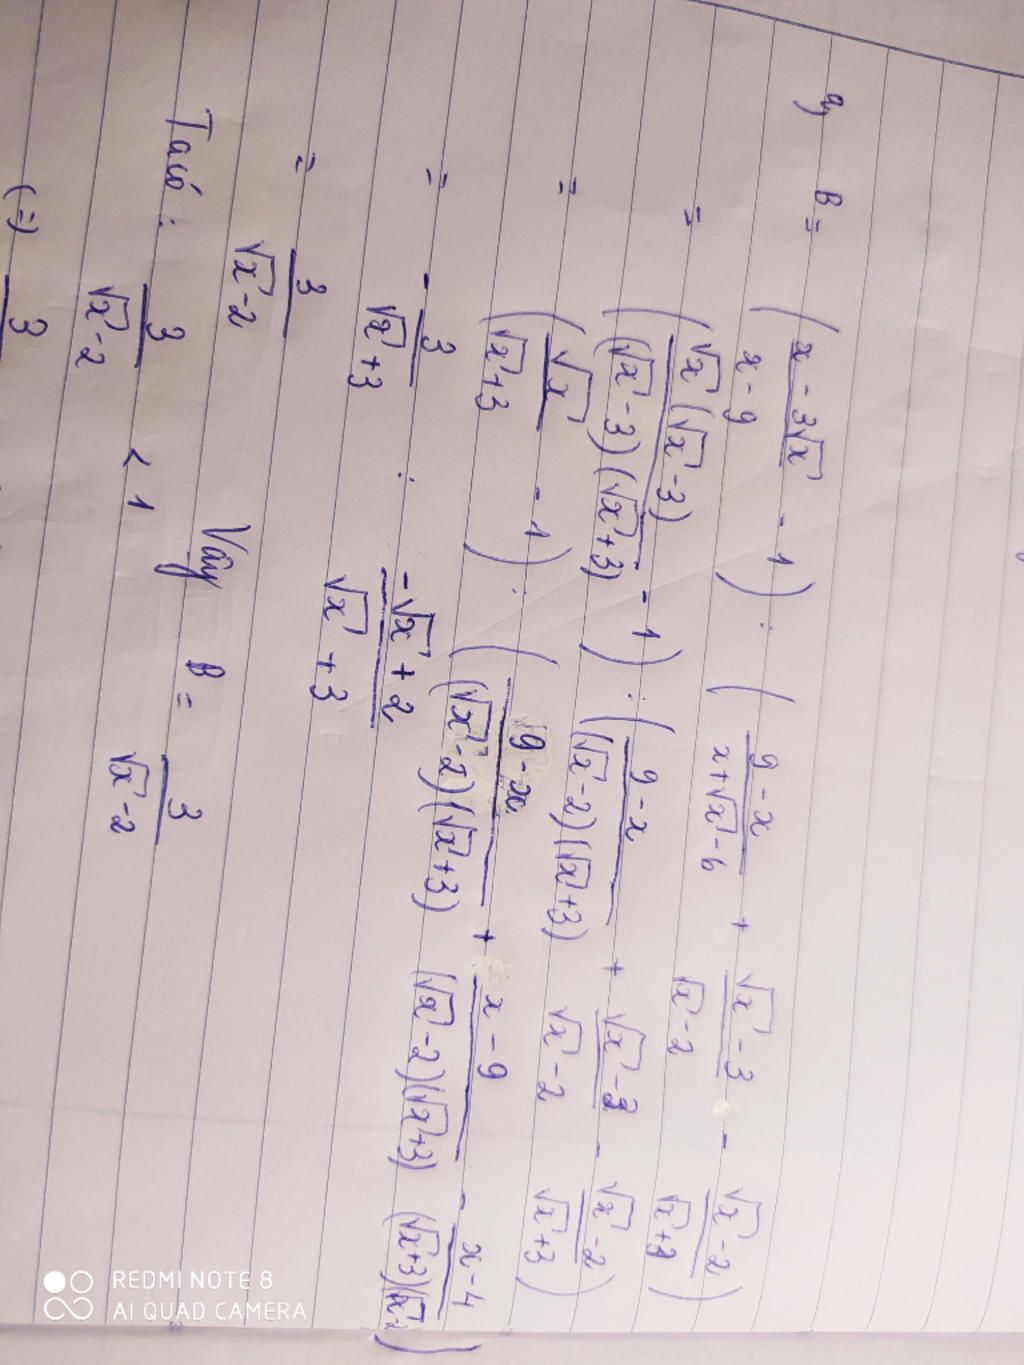 a) B = ( (x - 3√x)/(x - 9) - 1 ) : ( (9 - x)/(x + √x - 6) + (√x - 3)/(√x - 2) - (√x - 2)/(√x + 3) )
= ( √x(√x - 3)/((√x - 3)(√x + 3)) - 1 ) : ( (9 - x)/((√x - 2)(√x + 3)) + (√x - 3)/(√x - 2) - (√x - 2)/(√x + 3) )
= ( √x/(√x + 3) - 1 ) : ( (9 - x)/((√x - 2)(√x + 3)) + (x - 9)/((√x - 2)(√x + 3)) - (x - 4)/((√x + 3)(√x - 2)) )
= - 3/(√x + 3) : (-√x + 2)/(√x + 3)
= 3/(√x - 2) Vậy B = 3/(√x - 2)
Ta có : 3/(√x - 2) < 1
(=) 3
REDMI NOTE 8
AI QUAD CAMERA